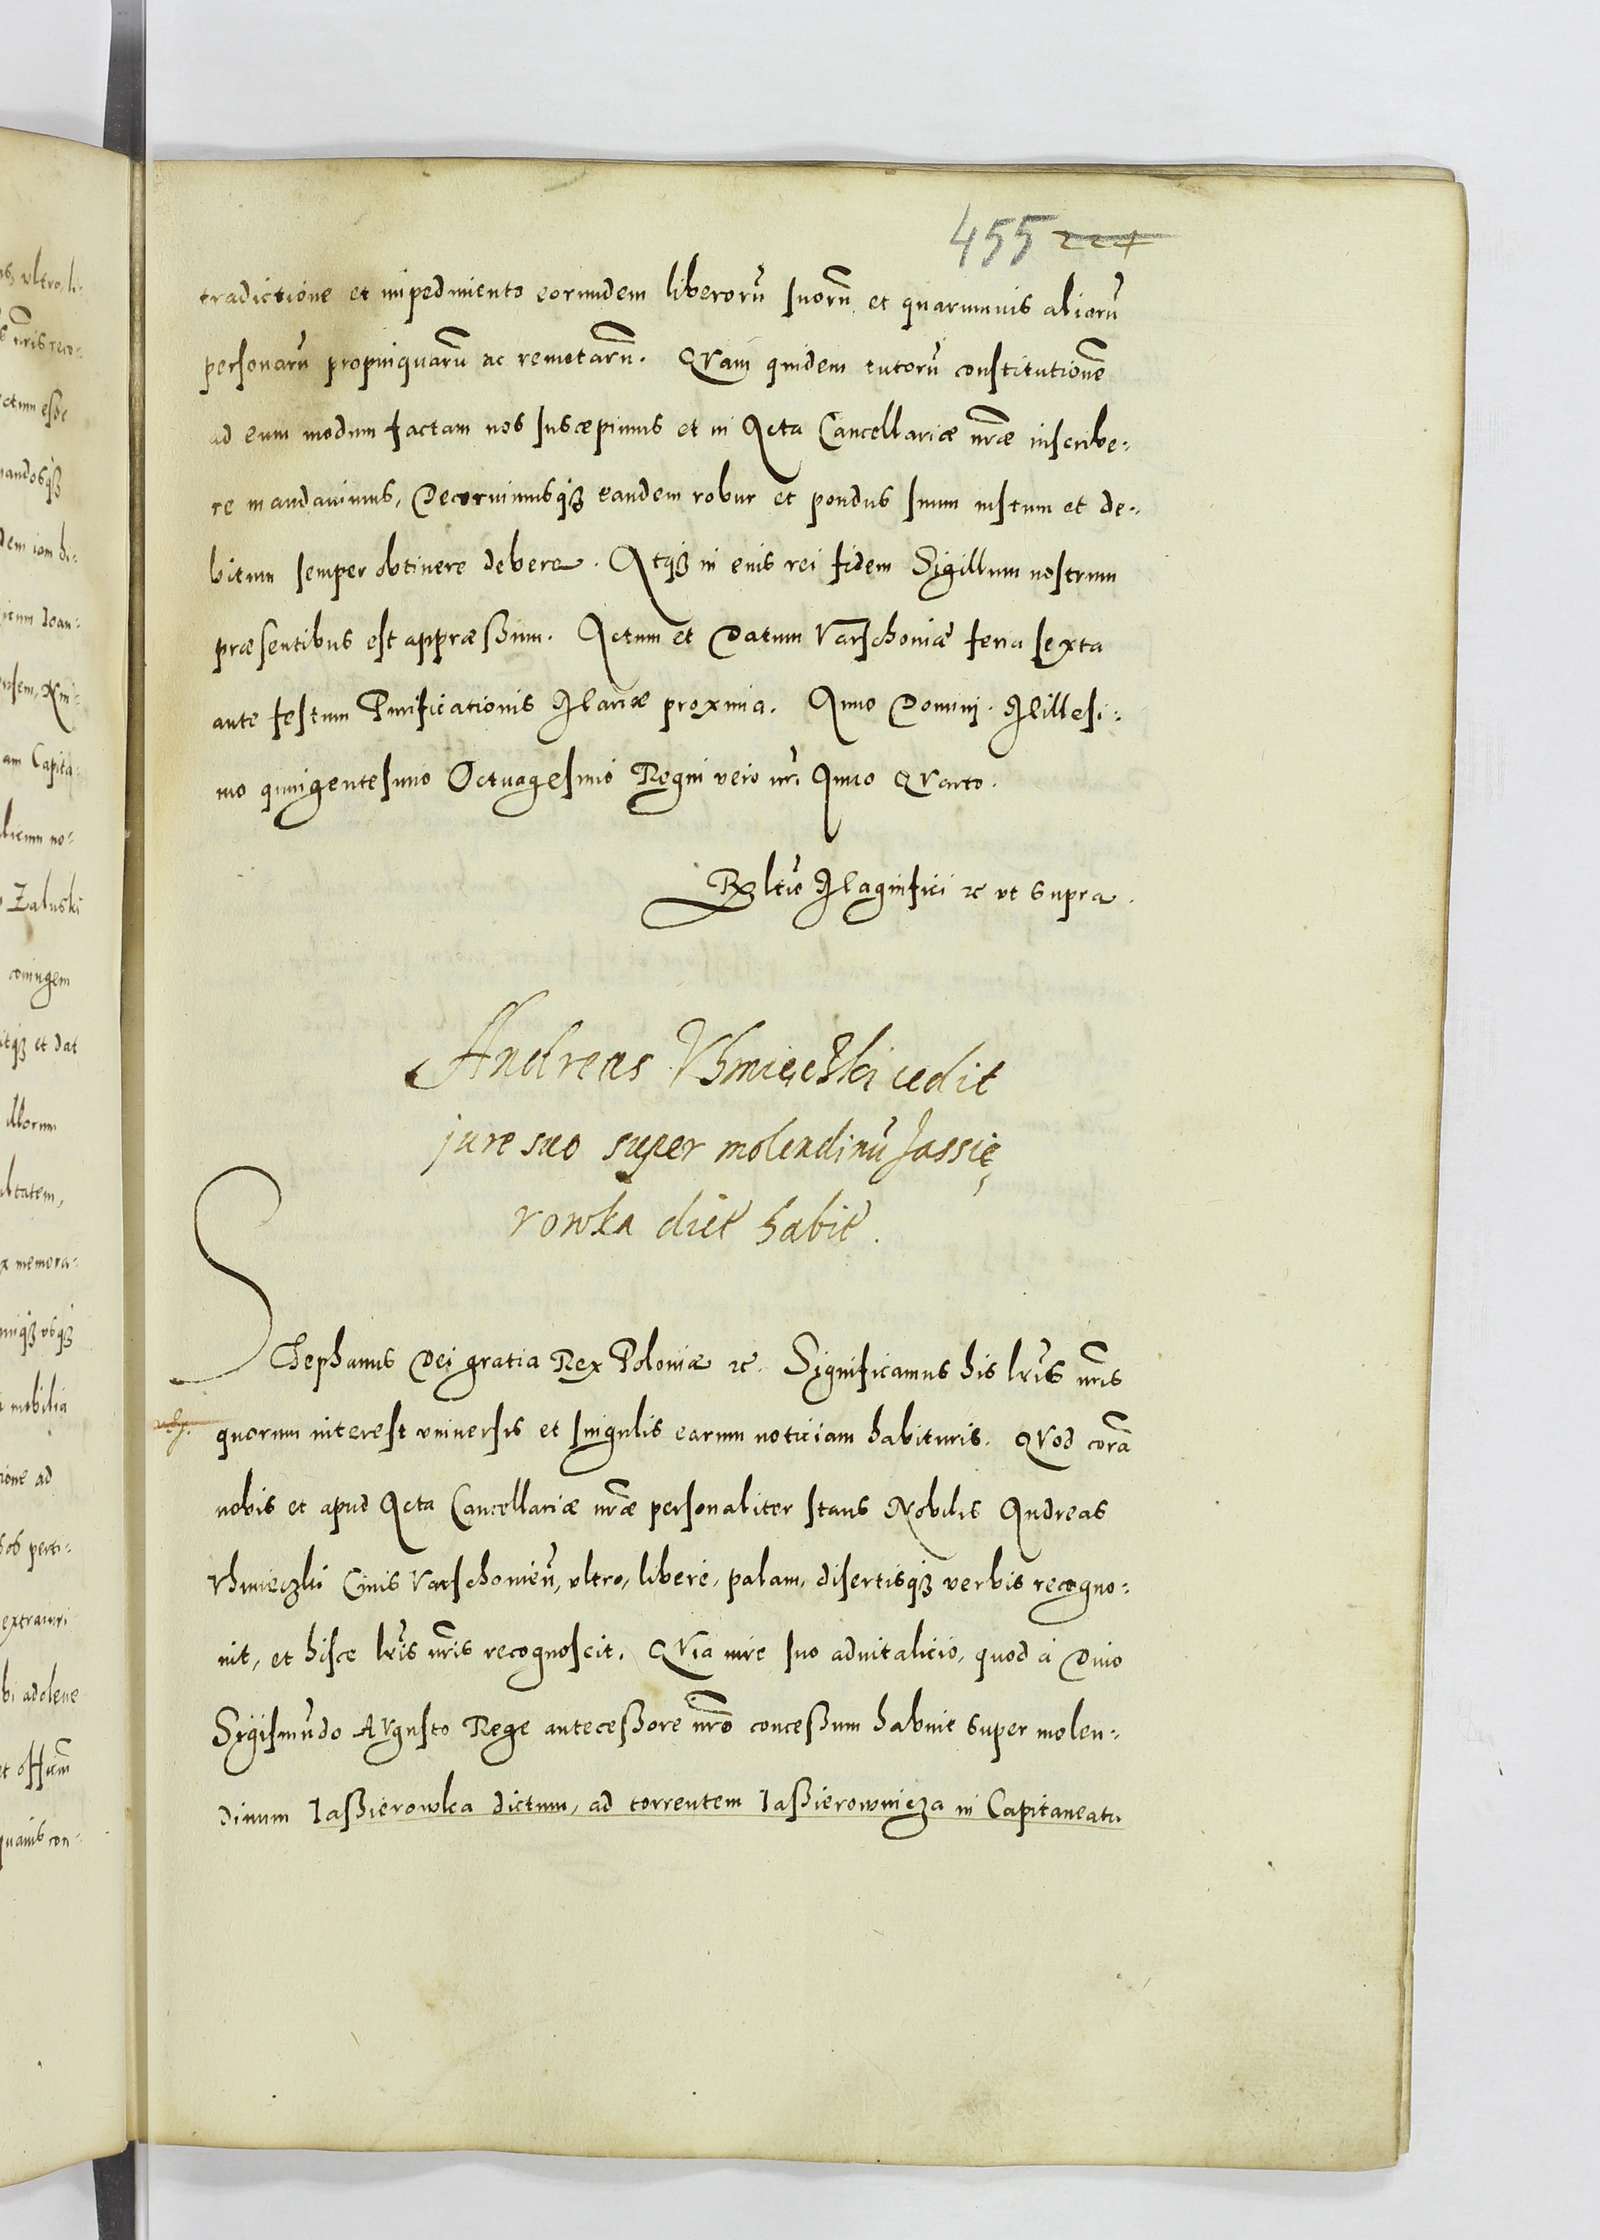 455 224
tradictione et impedimento eorundem liberorū suorū et quarumvis aliarū
personarū propinquarū ac remotarū. QVam quidem tutorū constitutionē
ad eum modum factam nos suscepimus et in Acta Cancellariæ nr̄æ inscribe:
re mandavimus, Decernimusqȝ eandem robur et pondus suum iustum et de:
bitum semper obtinere debere. Atqȝ in eius rei fidem Sigillum nostrum
præsentibus est appræßum. Actum et Datum Varschoviæ feria sexta
ante festum Purificationis Mariæ proxima. Anno Domini Millesi:
mo quingentesimo Octuagesimo Regni vero nr̄i Anno QVarto.
Rltio Magnifici ⁊c ut supra.
Andreas Vhmieczki cedit
jure suo super molendinū Jassie
rowka dict habit.
Stephanus Dei gratia Rex Poloniæ ⁊c. Significamus his lr̄is nr̄is
quorum interest universis et singulis earum noticiam habituris. QVod corā
nobis et apud Acta Cancellariæ nr̄æ personaliter stans Nobilis Andreas
Vhmieczki Civis Varschovień, ultro, libere, palam, disertisqȝ verbis recogno:
vit, et hisce lr̄is nr̄is recognoscit. QVia iure suo advitalicio, quod a Divo
Sigismūdo AVgusto Rege anteceßore nr̄o conceßum habuit super molen:
dinum Iaßierowka dictum, ad torrentem Iaßierownicza in Capitaneatu